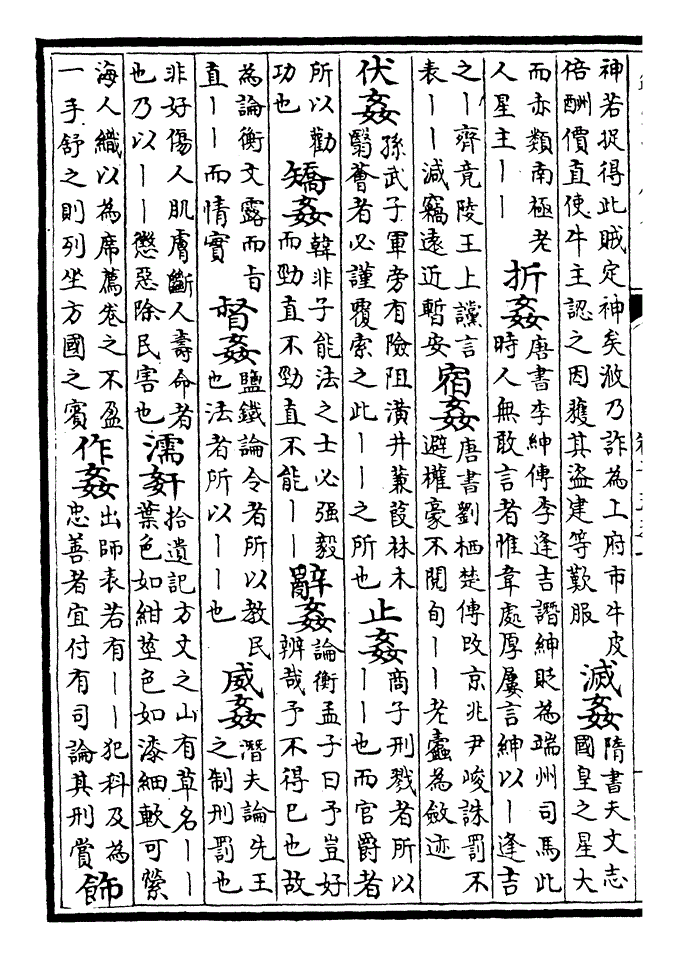 神若捉得此賊定神矣㳺乃詐為上府市牛皮
倍酬價直使牛主認之因獲其盜建等歎服
滅姦
隋書天文志
國皇之星大
而亦類南極老
人星主丨丨
折姦
唐書李紳傳李逢吉譖紳貶為端州司馬此
時人無敢言者惟韋處厚屢言紳以丨逢吉
之丨齊竟陵王上讜言
表丨丨減竊遠近暫安
宿姦
唐書劉栖楚傳改京兆尹峻誅罰不
避權豪不閱旬丨丨老蠹為斂迹
伏姦
孫武子軍旁有險阻潢井蒹葭林木
翳薈者必謹覆索之此丨丨之所也
止姦
商子刑戮者所以
丨丨也而官爵者
所以勸
功也
矯姦
韓非子能法之士必强毅
而勁直不勁直不能丨丨
辭姦
論衡孟子曰予豈好
辨哉予不得已也故
為論衡文露而旨
直丨丨而情實
督姦
鹽鐵論令者所以教民
也法者所以丨丨也
威姦
潛夫論先王
之制刑罰也
非好傷人肌膚斷人壽命者
也乃以丨丨懲惡除民害也
濡姧
拾遺記方丈之山有草名丨丨
葉色如紺莖色如漆細軟可縈
海人織以為席薦卷之不盈
一手舒之則列坐方國之賓
作姦
出師表若有丨丨犯科及為
忠善者宜付有司論其刑賞
飾